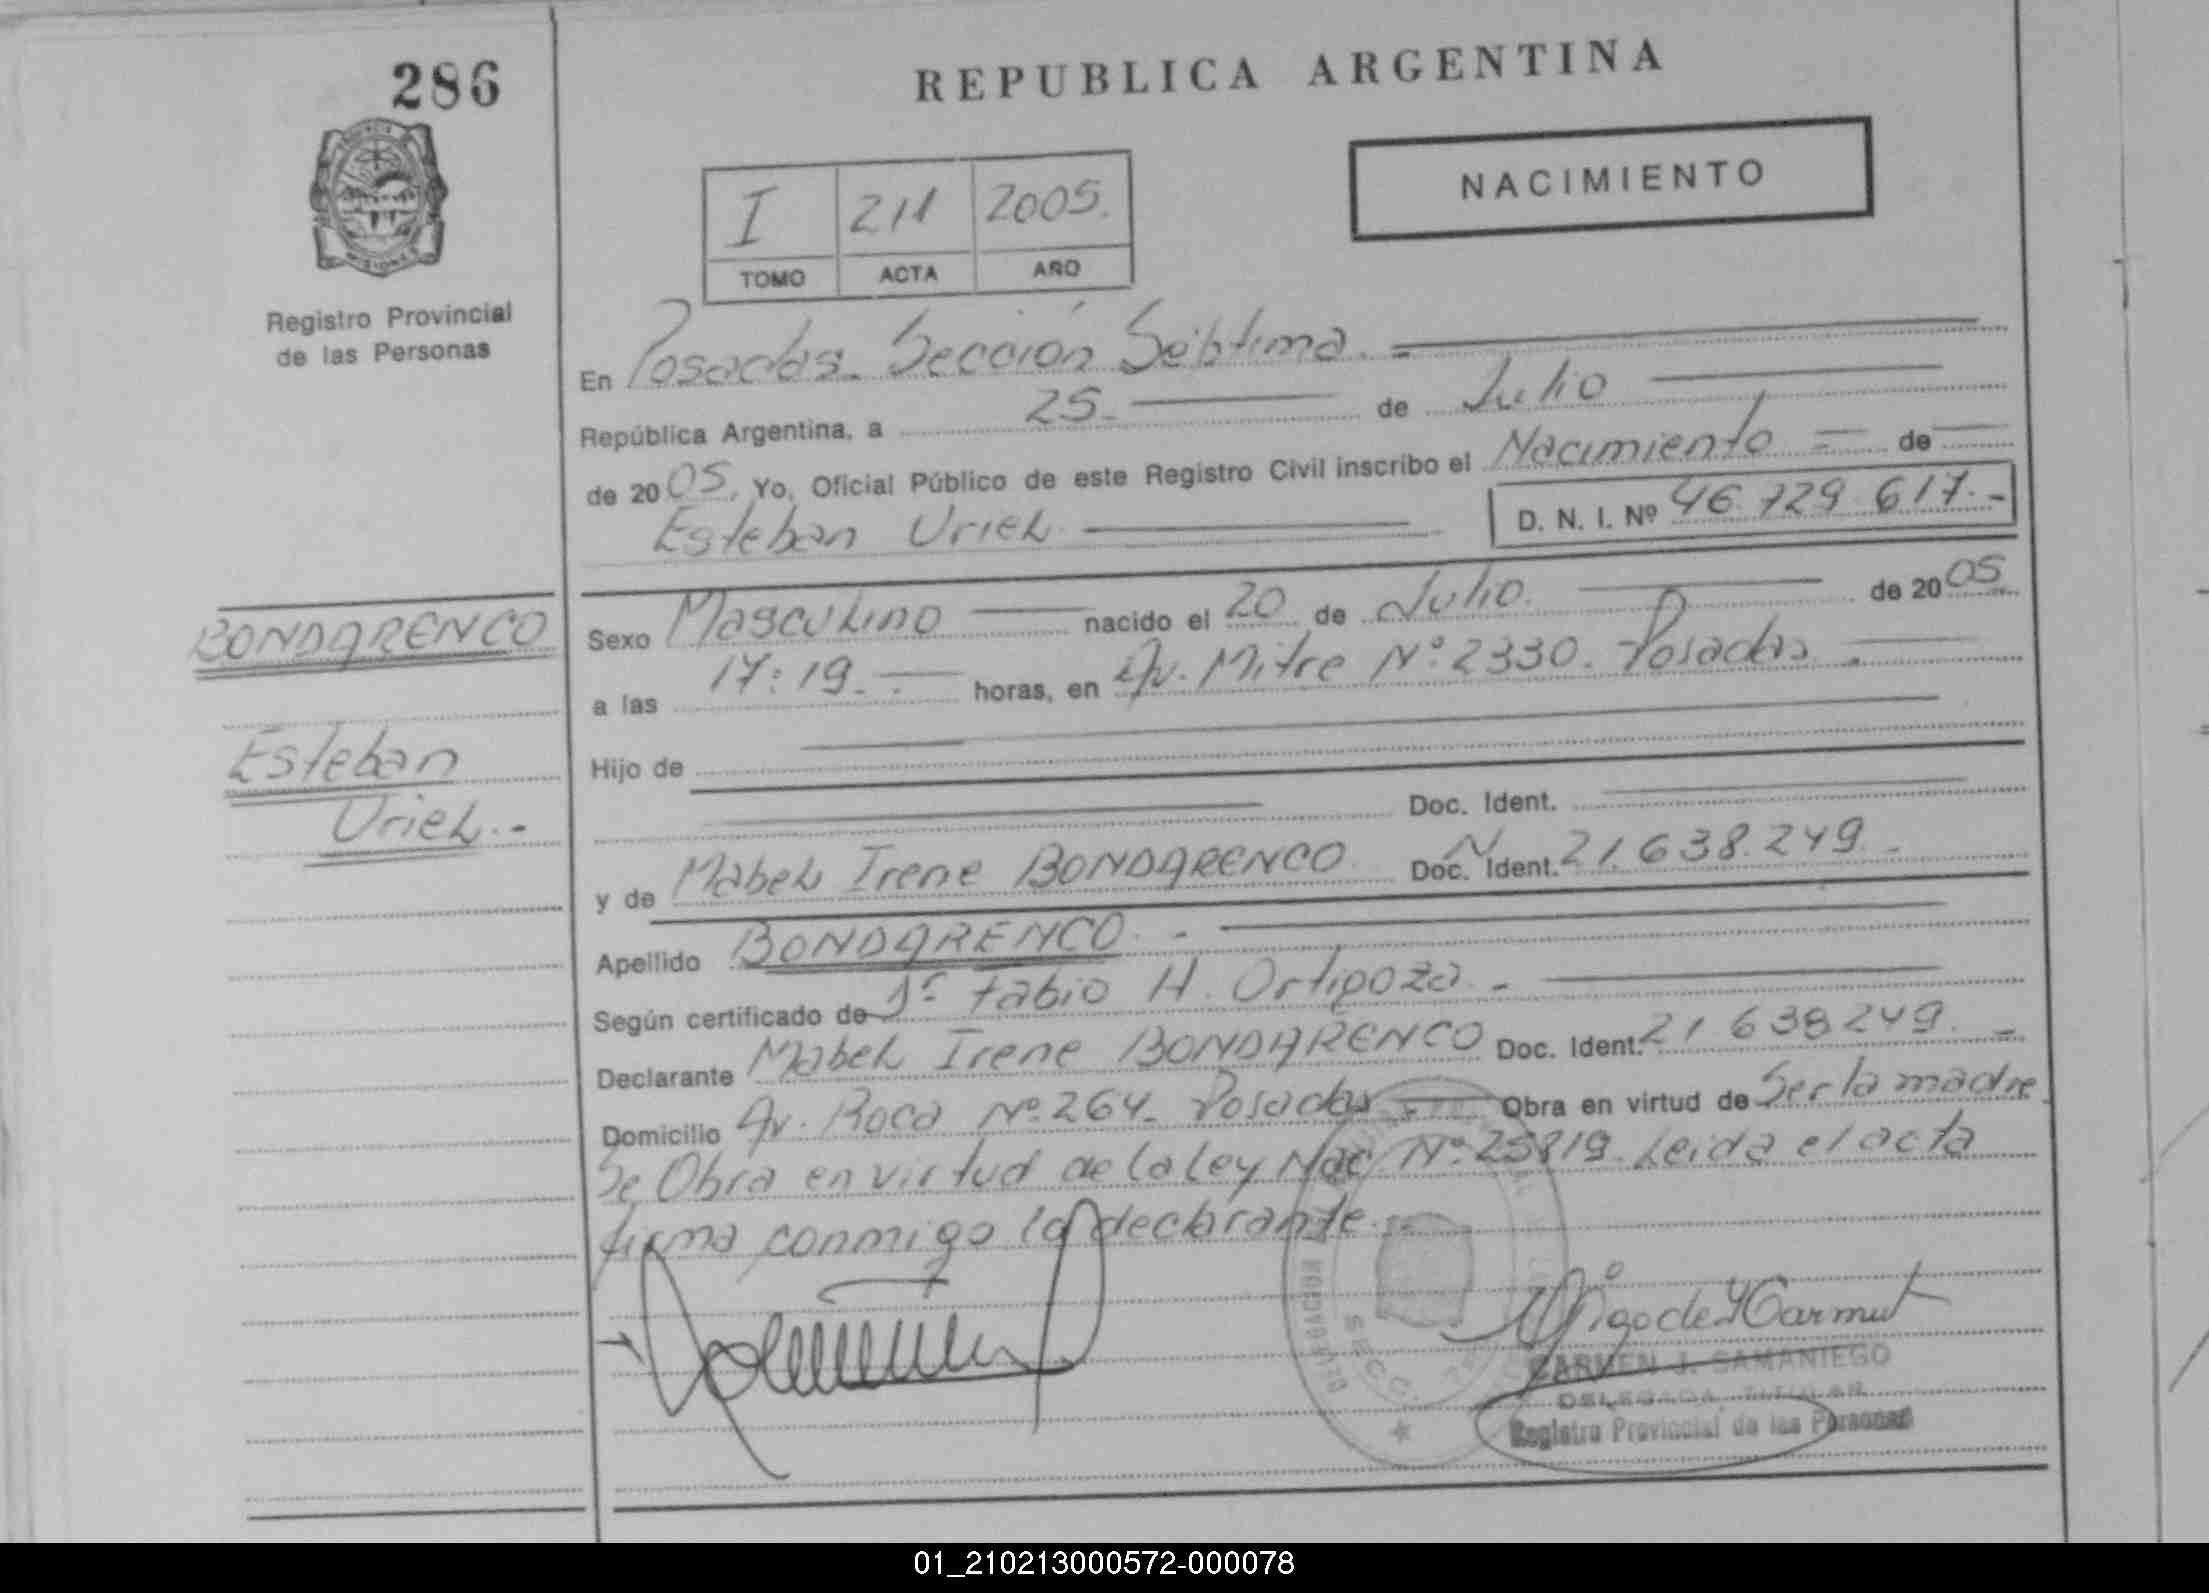 286
REPUBLICA ARGENTINA
NACIMIENTO
I 211 2005.
TOMO ACTA AÑO
MISIONES
Registro Provincial
de las Personas
En Posadas. Sección Séptima.
República Argentina, a 25. de Julio
de 2005. Yo, Oficial Público de este Registro Civil inscribo el Nacimiento de
Esteban Uriel D. N. I. Nº 46.729.617.-
BONDARENCO
Esteban
Uriel.-
Sexo Masculino nacido el 20 de Julio. de 2005
a las 17:19. horas, en Av. Mitre Nº 2330. Posadas.
Hijo de
Doc. Ident.
y de Mabel Irene BONDARENCO Doc. Ident. N 21.638.249.-
Apellido BONDARENCO.-
Según certificado de Fabio H. Ortigoza.-
Declarante Mabel Irene BONDARENCO Doc. Ident. 21.638.249.
Domicilio Av. Roca Nº 264. Posadas Obra en virtud de Ser la madre.
Se Obra en virtud de la Ley Nac. Nº 25819. Leida el acta
firma conmigo la declarante.
SECC.
CARMEN J. SAMANIEGO
DELEGADA TITULAR
Registro Provincial de las Personas
01_210213000572-000078